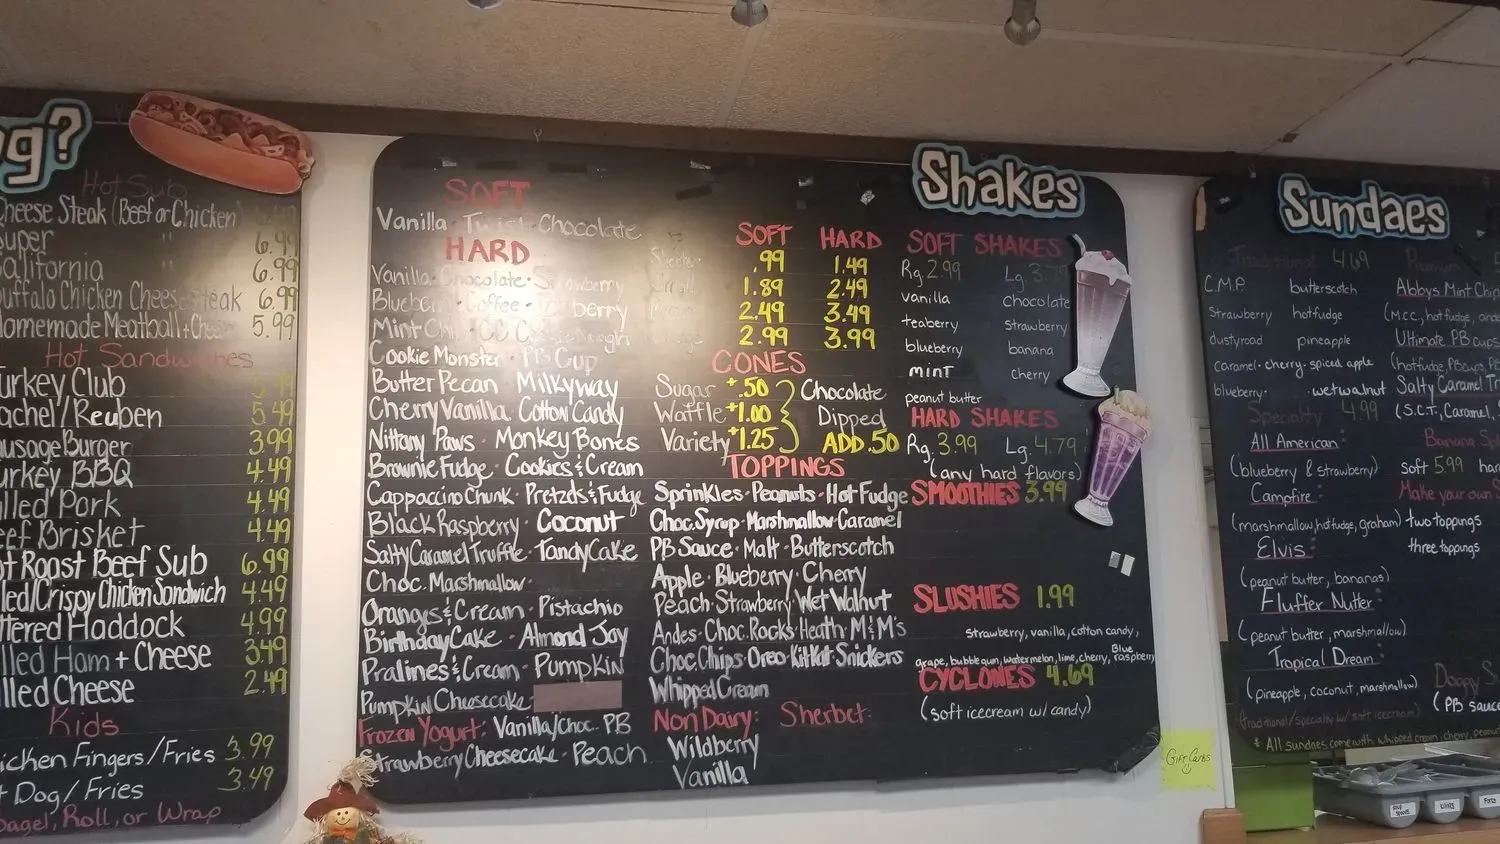 g?
Hot Sub
Cheese Steak (Beef or Chicken)
Super " 6.99
California " 6.99
Buffalo Chicken Cheesesteak 6.99
Homemade Meatball + Cheese 5.99
Hot Sandwiches
Turkey Club 5.49
Rachel/Reuben 5.49
Sausage Burger 3.99
Turkey BBQ 4.49
lled Pork 4.49
eef Brisket 4.49
ot Roast Beef Sub 6.99
lled/Crispy Chicken Sandwich 4.49
ttered Haddock 4.99
lled Ham + Cheese 3.49
lled Cheese 2.49
Kids
hicken Fingers/Fries 3.99
t Dog/Fries 3.49
Bagel, Roll, or Wrap
SOFT
Vanilla · Twist · Chocolate
HARD
Vanilla · Chocolate · Strawberry
Blueberry · Coffee · Teaberry
Mint Chip · CC Cookie Dough
Cookie Monster · PB Cup
Butter Pecan Milkyway
Cherry Vanilla · Cotton Candy
Nittany Paws · Monkey Bones
Brownie Fudge · Cookies & Cream
Cappaccino Chunk · Pretzels & Fudge
Black Raspberry · Coconut
Salty Caramel Truffle · TandyCake
Choc. Marshmallow
Oranges & Cream · Pistachio
Birthday Cake · Almond Joy
Pralines & Cream · Pumpkin
Pumpkin Cheesecake
Frozen Yogurt: Vanilla/Choc. PB
Strawberry Cheesecake · Peach
SOFT HARD
.99 1.49
1.89 2.49
2.49 3.49
2.99 3.99
CONES
Sugar +.50 Chocolate
Waffle +1.00 Dipped
Variety +1.25 ADD .50
TOPPINGS
Sprinkles · Peanuts · Hot Fudge
Choc. Syrup · Marshmallow · Caramel
PB Sauce · Malt · Butterscotch
Apple · Blueberry · Cherry
Peach · Strawberry · Wet Walnut
Andes · Choc. Rocks · Heath · M&M's
Choc. Chips · Oreo · Kit Kat · Snickers
Whipped Cream
Non Dairy: Sherbet:
Wildberry
Vanilla
Shakes
SOFT SHAKES
Rg. 2.99 Lg. 3.79
vanilla chocolate
teaberry strawberry
blueberry banana
mint cherry
peanut butter
HARD SHAKES
Rg. 3.99 Lg. 4.79
(any hard flavors)
SMOOTHIES 3.99
SLUSHIES 1.99
strawberry, vanilla, cotton candy,
grape, bubblegum, watermelon, lime, cherry, Blue raspberry
CYCLONES 4.69
(soft icecream w/ candy)
Gift Cards
Sundaes
Traditional 4.69
C.M.P. butterscotch
Strawberry hotfudge
dustyroad pineapple
caramel · cherry · spiced apple
blueberry · wetwalnut
Specialty 4.99
All American:
(blueberry & strawberry)
Campfire:
(marshmallow, hotfudge, graham)
Elvis:
(peanut butter, bananas)
Fluffer Nutter:
(peanut butter, marshmallow)
Tropical Dream:
(pineapple, coconut, marshmallow)
(traditional/specialty w/ soft icecream)
* All sundaes come with whipped cream, cherry, peanu
Premium
Abbys Mint Chip
(M.C.C., hotfudge, ande
Ultimate PB cups
(hotfudge, PBcups, P
Salty Caramel Tr
(S.C.T., Caramel,
Banana Spl
soft 5.99 har
Make your own S
two toppings
three toppings
Doggy Su
(PB sauce